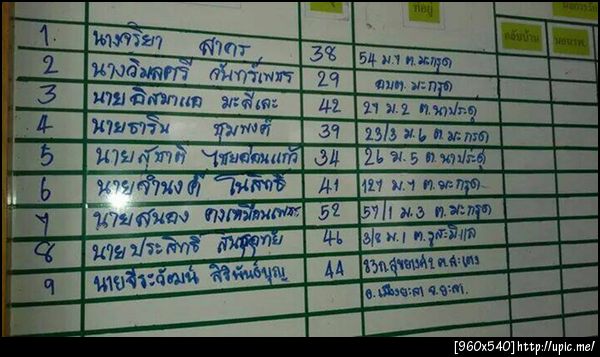 ที่อยู่
กลับบ้าน
1. นางจริยา สาคร 38 54 ม.7 ต.มะกรูด
2 นางวิมลศรี จันทร์เพชร 29 อบต.มะกรูด
3 นายอิสมาแอ มะสีละ 42 27 ม.2 ต.นาประดู่
4 นายธาริน ชุมพงศ์ 39 23/3 ม.6 ต.มะกรูด
5 นายสุชาติ ไชยอ่อนแก้ว 34 26 ม.5 ต.นาประดู่
6 นายจำนงค์ โนสิทธิ์ 41 127 ม.7 ต.มะกรูด
7 นายสนอง 52 57/1 ม.3 ต.มะกรูด
8 นายประสิทธิ์ 46 3/8 ม.1 ต.รูสะมิแล
9 นายจีระวัฒน์ สิริพันธ์บุญ 44 ต.สะเตง
อ.เมืองยะลา จ.ยะลา.
[960x540]http://upic.me/